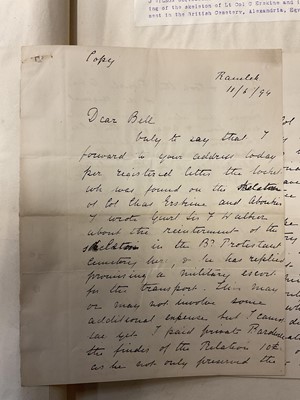 ing of the skeleton of Lt Col C Erskine and i
ment in the British Cemetery, Alexandria, Egy
Copy
Ramleh
10/6/94
Dear Bell
Only to say that I
forward to your address today
per registered letter the
wh was found on the skeleton
of Col Chas Erskine and
I wrote Genl Sir F Walker
about the reinterment of the
skeleton in the Br Protestant
Cemetery here, & he has replied
promising a military escort
for the transport. This may
or may not involve some
additional expense but I cannot
say yet. I paid private
the finder of the Relation 10£
as he not only preserved the